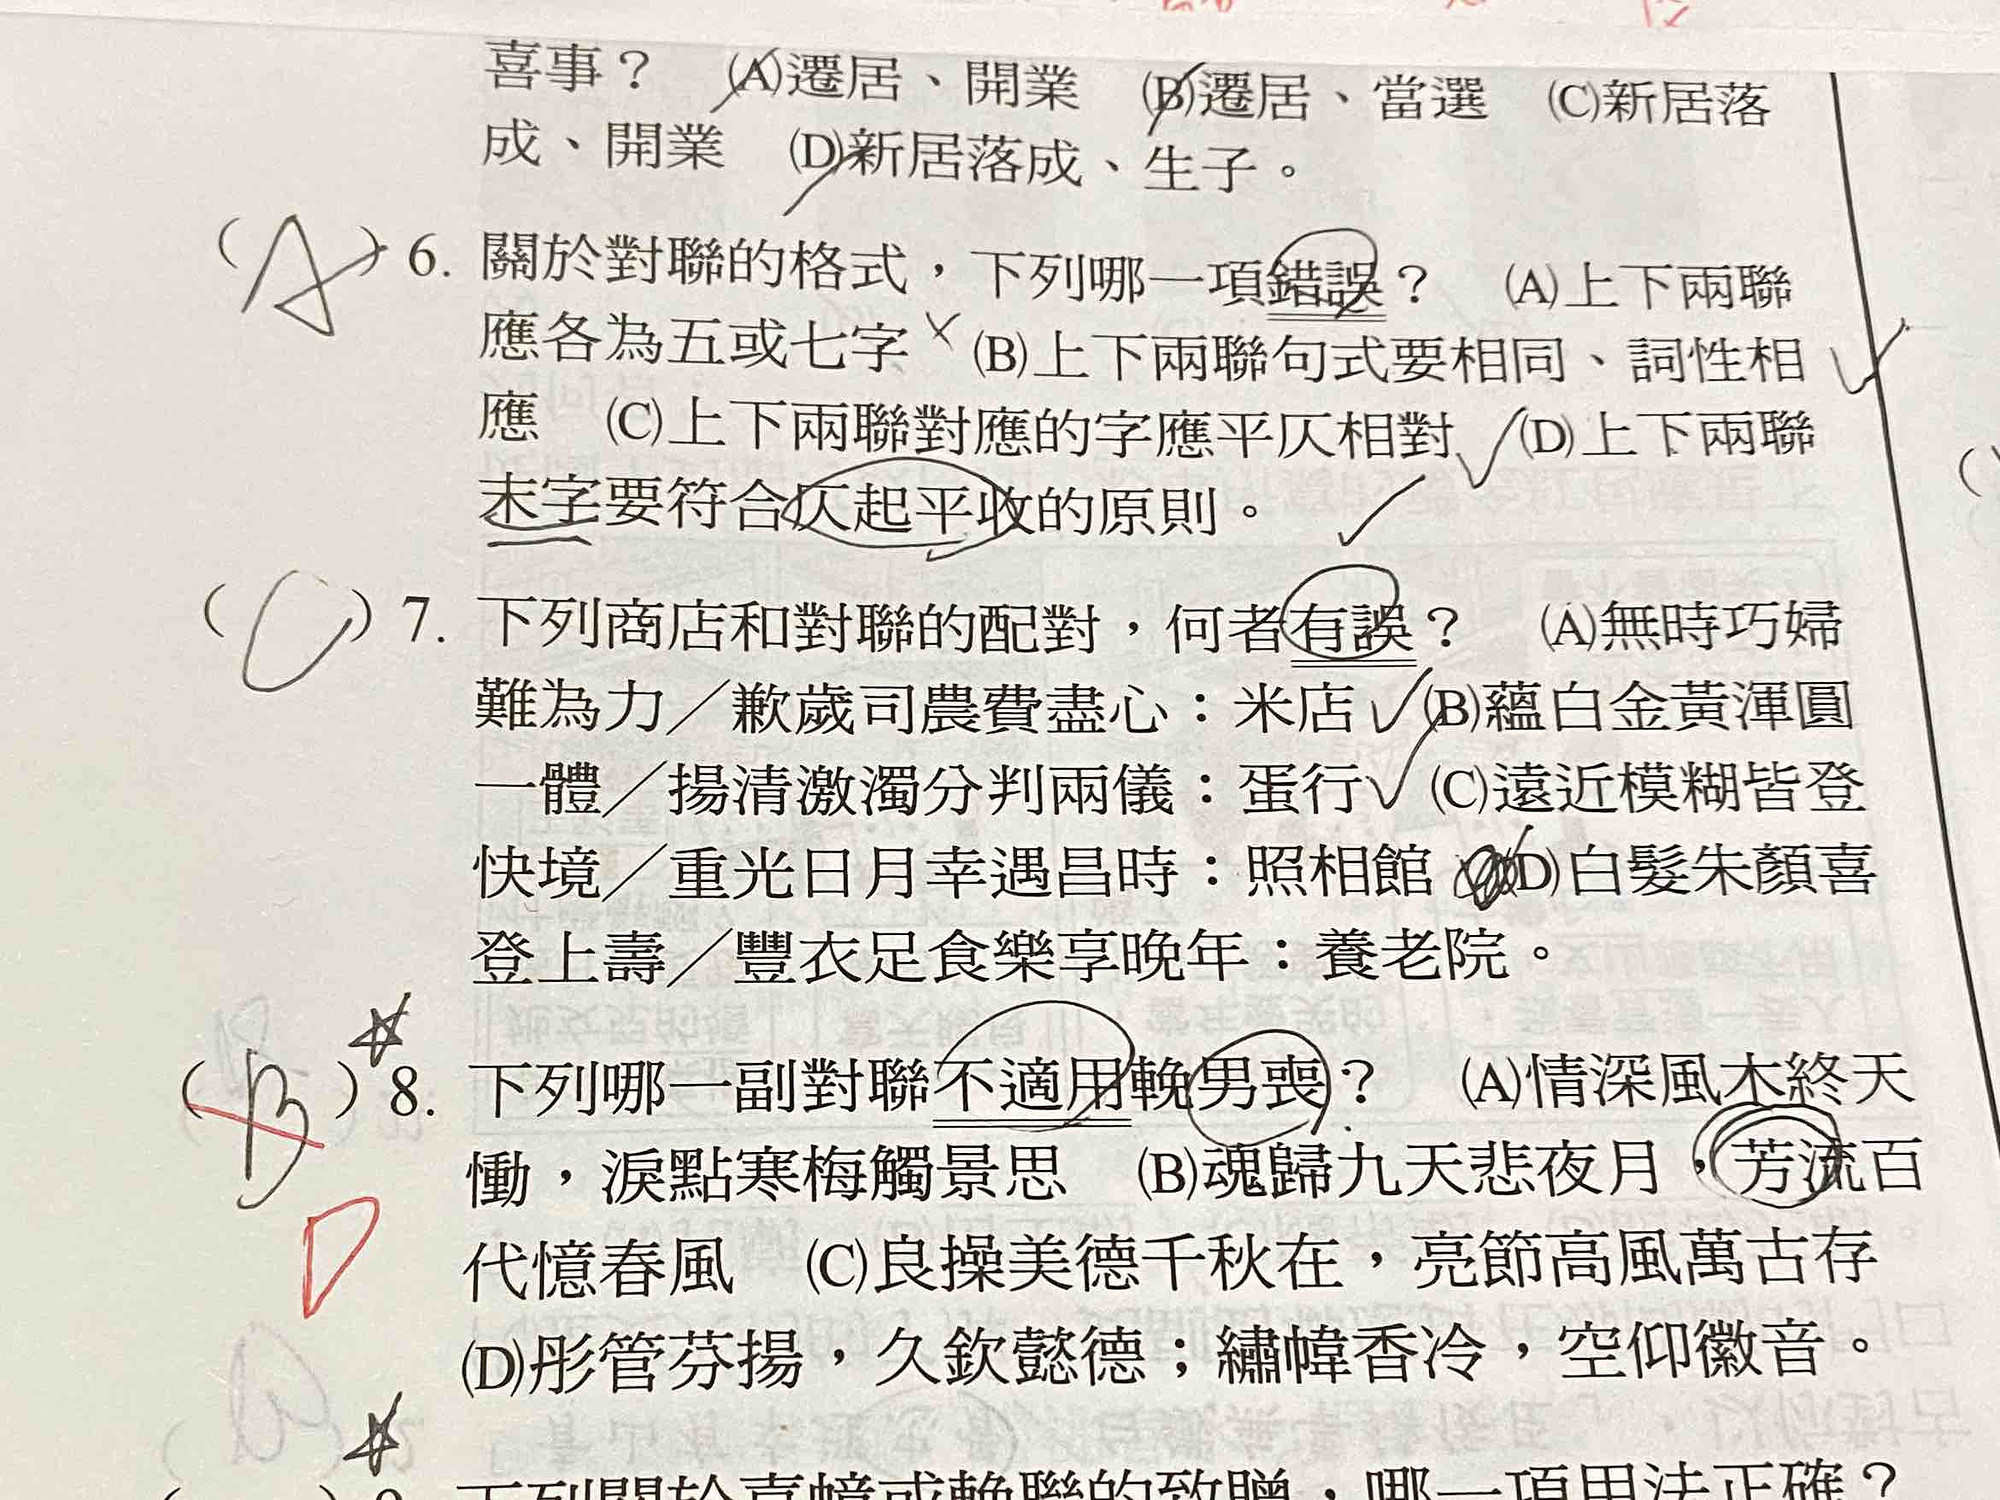 喜事？ (A)遷居、開業 (B)遷居、當選 (C)新居落
成、開業 (D)新居落成、生子。
(A) 6. 關於對聯的格式，下列哪一項錯誤？ (A)上下兩聯
應各為五或七字 (B)上下兩聯句式要相同、詞性相
應 (C)上下兩聯對應的字應平仄相對 (D)上下兩聯
末字要符合仄起平收的原則。
(C) 7. 下列商店和對聯的配對，何者有誤？ (A)無時巧婦
難為力／歉歲司農費盡心：米店 (B)蘊白金黃渾圓
一體／揚清激濁分判兩儀：蛋行 (C)遠近模糊皆登
快境／重光日月幸遇昌時：照相館 (D)白髮朱顏喜
登上壽／豐衣足食樂享晚年：養老院。
(B) 8. 下列哪一副對聯不適用輓男喪？ (A)情深風木終天
慟，淚點寒梅觸景思 (B)魂歸九天悲夜月，芳流百
D
代憶春風 (C)良操美德千秋在，亮節高風萬古存
(D)彤管芬揚，久欽懿德；繡幃香冷，空仰徽音。
下列關於喜幛或輓聯的致贈，哪一項用法正確？